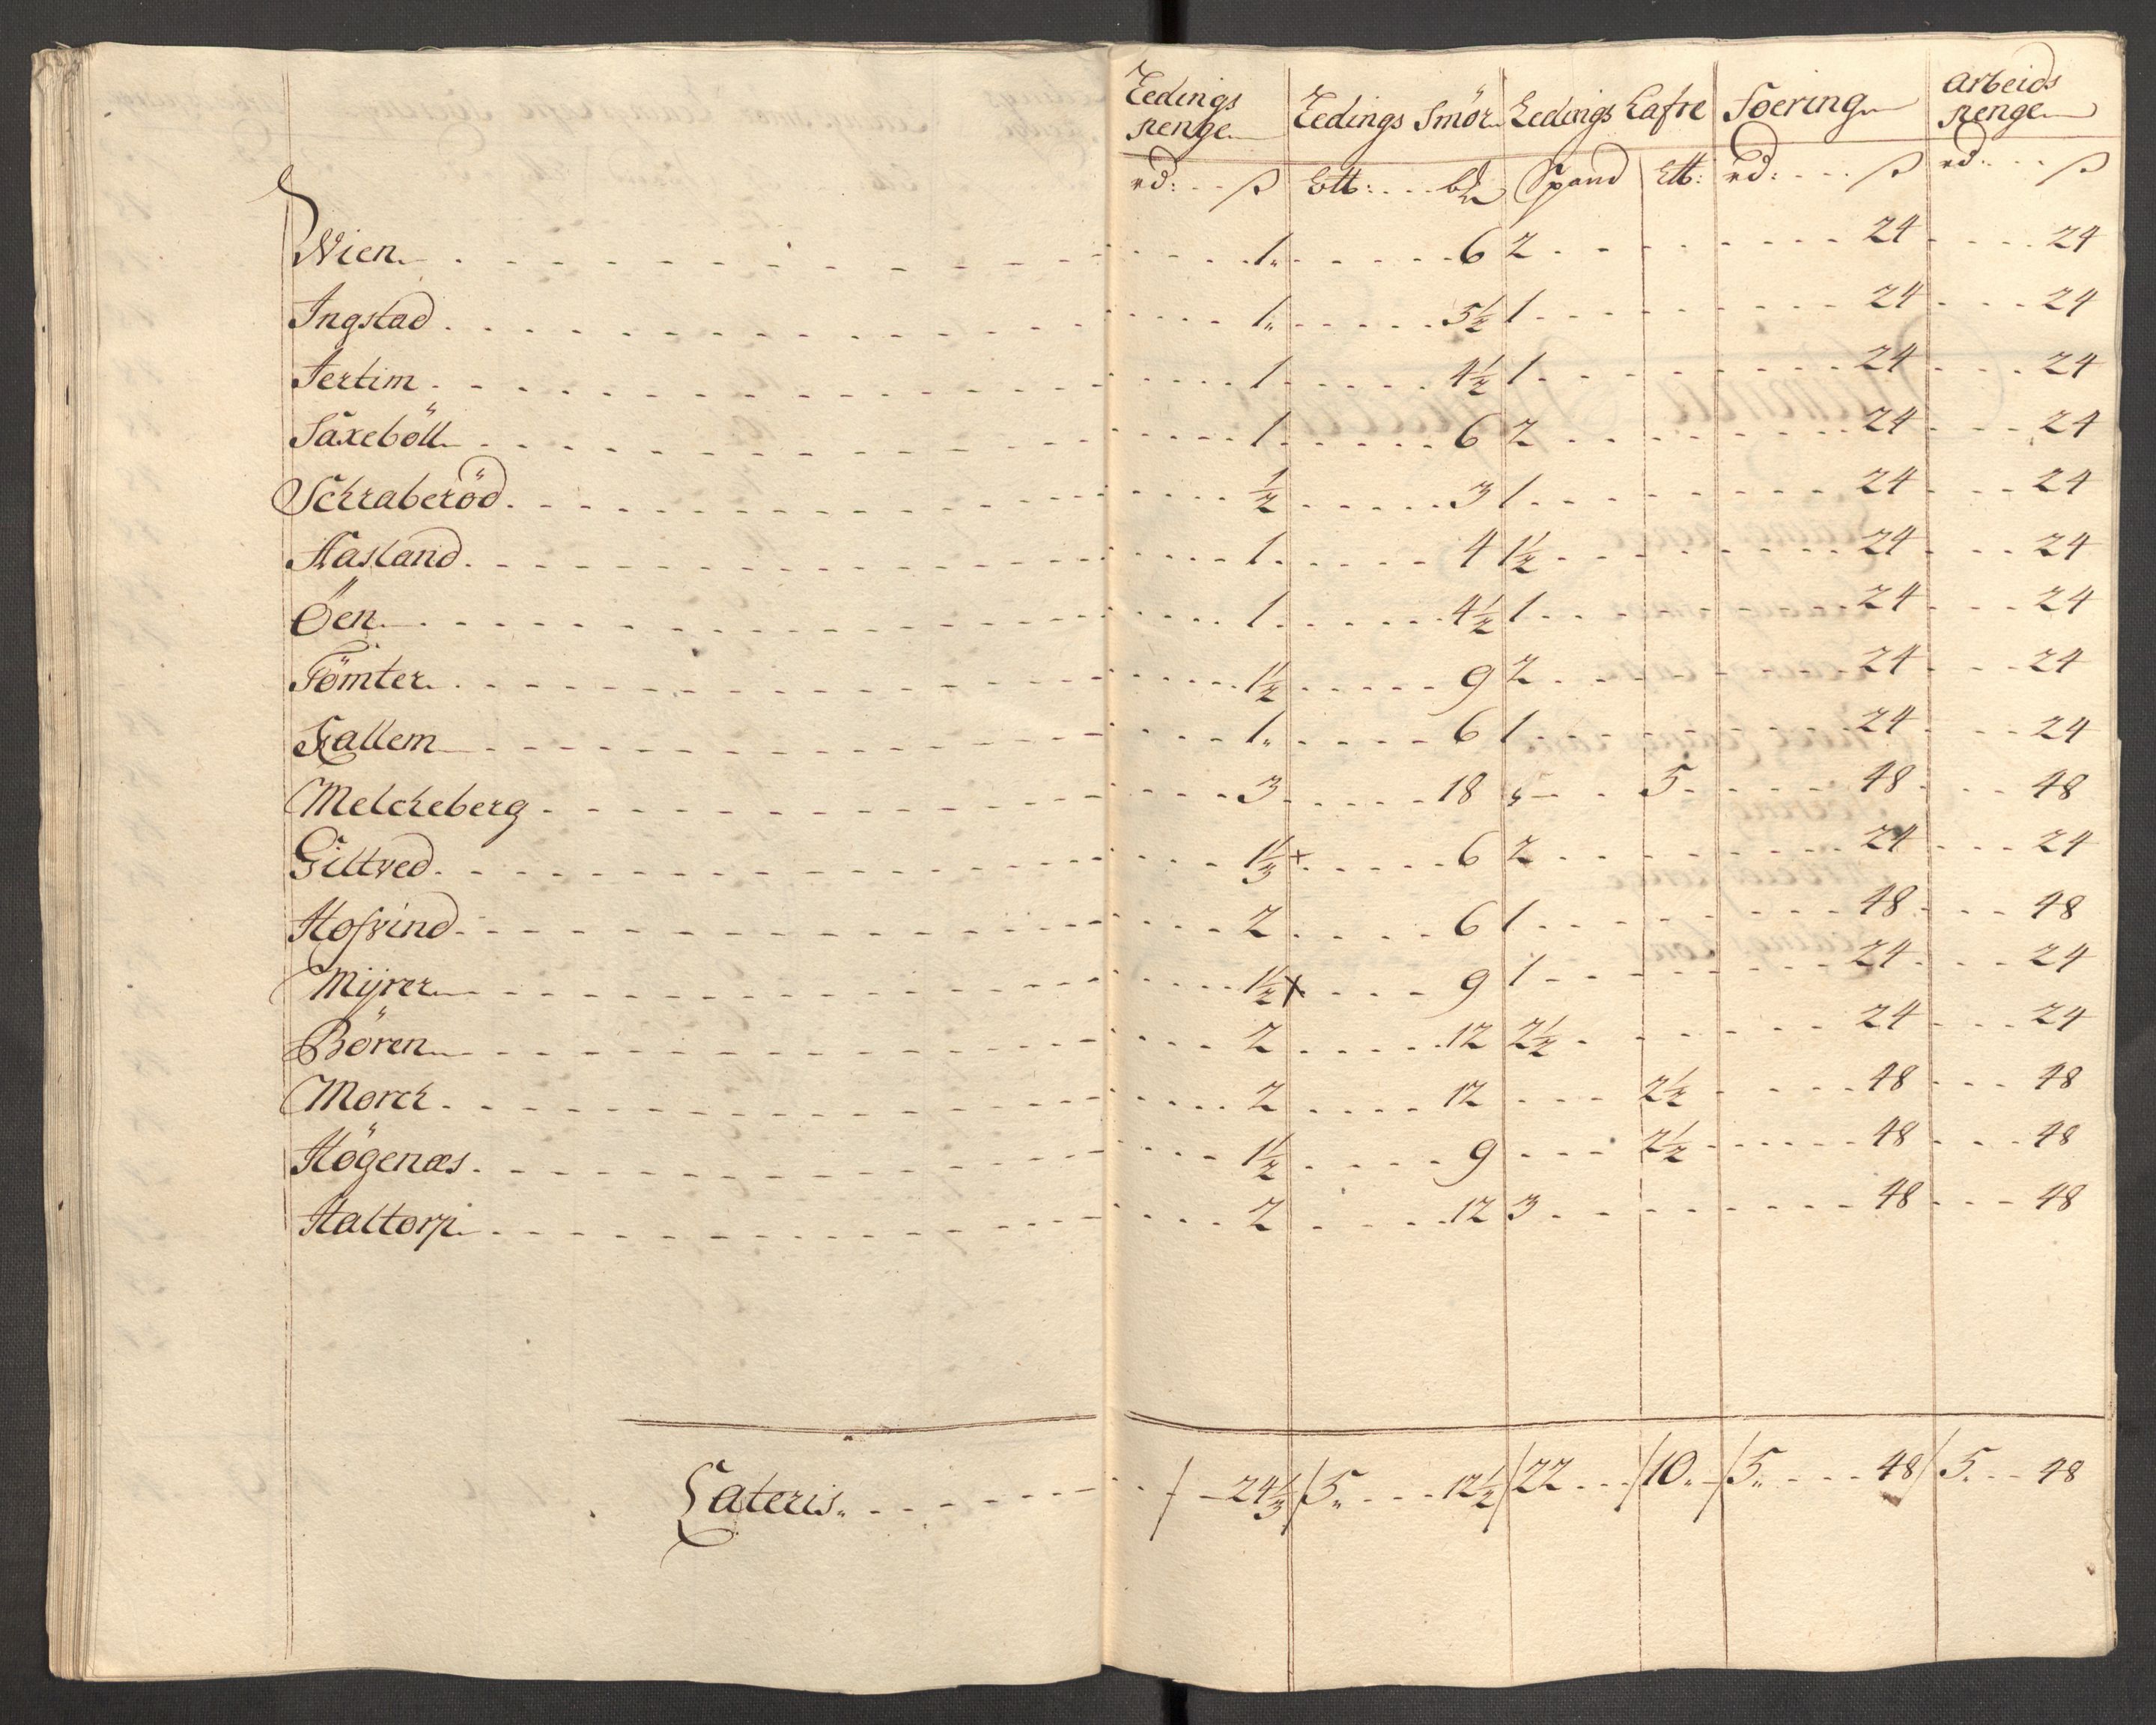 Ledings penge | Ledings Smör | Ledings Lafre | Foering | Arbeids penge
rd: ß | Ltt: bL | Spand | Ltt: | rd: ß | rd: ß
Wien 1 6 2 24 24
Ingstad 1 5½ 1 24 24
Jertim 1 4½ 1 24 24
Saxeböll 1 6 2 24 24
Schraberöd ½ 3 1 24 24
Aasland 1 4 1½ 24 24
Öen 1 4½ 1 24 24
Tömter 1½ 9 2 24 24
Kallem 1 6 1 24 24
Melcheberg 3 18 5 48 48
Gilltved 1⅓ + 6 2 24 24
Hofvind 2 6 1 48 48
Mijrer 1½ x 9 1 24 24
Bören 2 12 2½ 24 24
Morch 2 12 2½ 48 48
Högenæs 1½ 9 2½ 48 48
Haltorp 2 12 3 48 48
Lateris / 24⅓ / 5 12½ / 22 / 10 / 5 48 / 5 48